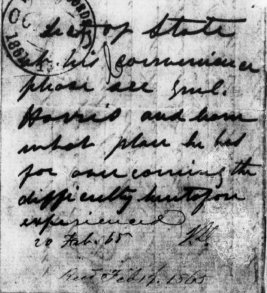 Sec. of State
at his convenience
please see Genl.
Harris and learn
what plan he has
for overcoming the
difficulty heretofore
experienced
20 Feb. 65
Recd Feb 17, 1865